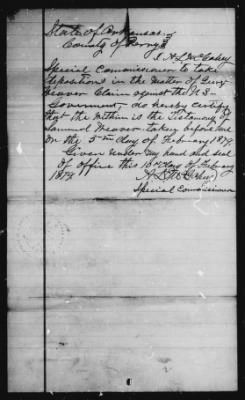 State of Arkansas
County of Perry
I A L McCahey
Special Commissioner to take
depositions in the matter of Levy
Weaver Claim against the U S
Government, do hereby certify
that the within is the Testamony of
Samuel Weaver taken before me
on the 5th day of February 187
Given under my hand and seal
of office this 16 day of February
187
Special Commissioner